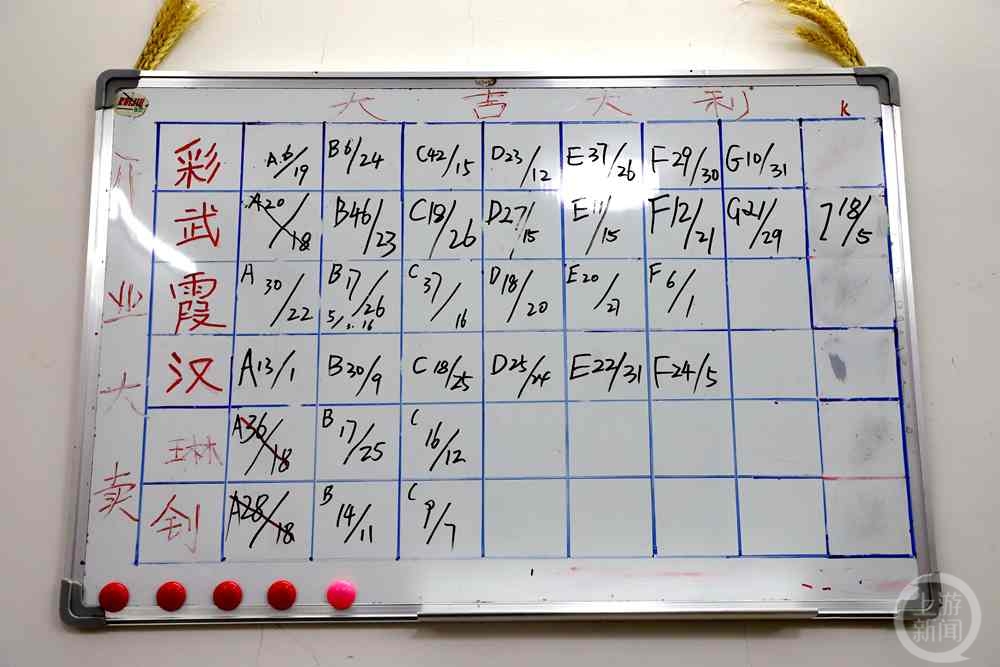 大 吉 大 利
K
业 大 卖
彩 A 6/19 B6/24 C42/15 D23/12 E37/26 F29/30 G10/31
武 A20/18 B46/23 C18/26 D27/15 E11/15 F12/21 G21/29 18/5
霞 A 30/22 B 17/26 C 37/16 D18/20 E20/21 F 6/1
汉 A13/1 B30/9 C18/25 D25/24 E22/31 F24/5
琳 A36/18 B 17/25 C 16/12
钊 A28/18 B 14/11 C 9/7
上游新闻